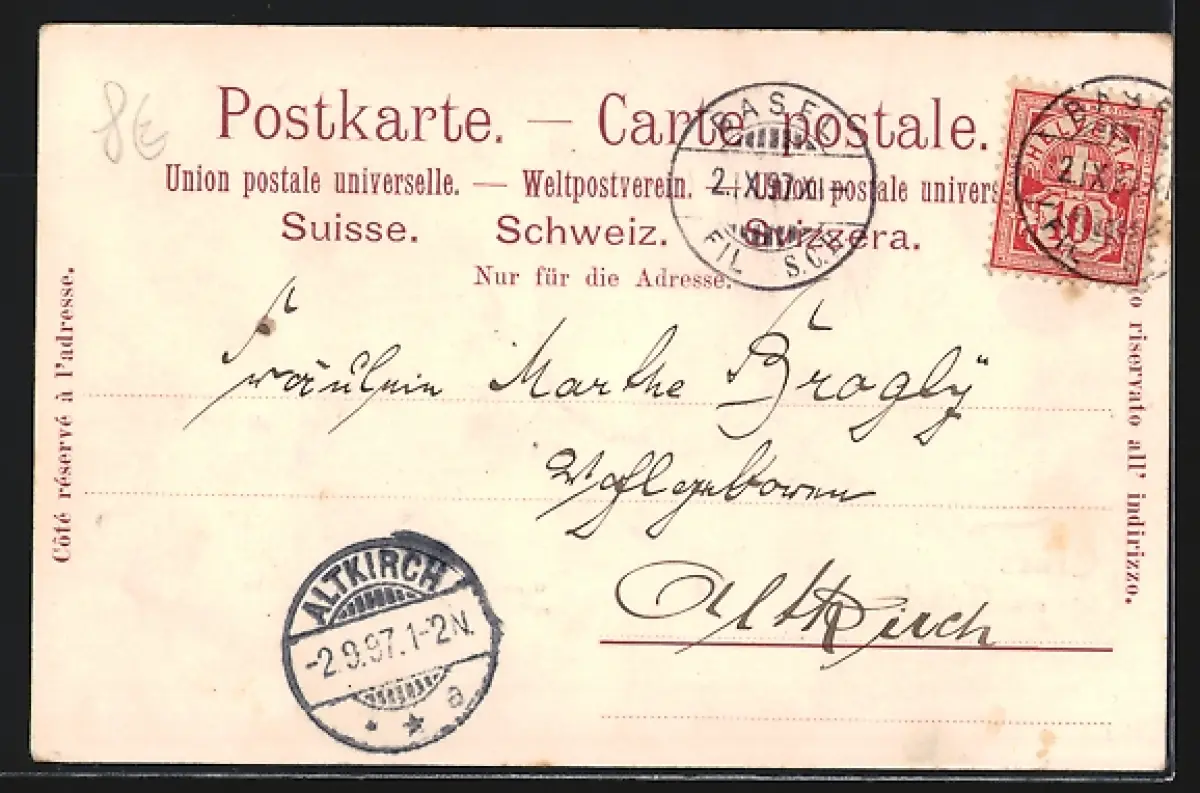 8€
Postkarte. — Carte postale.
Union postale universelle. — Weltpostverein. — Unione postale univers
Suisse. Schweiz. Svizzera.
Nur für die Adresse.
BASEL
2.IX.97.XI
FIL S.C.B.
10
2.IX
FIL
Côté réservé à l'adresse.
riservato all' indirizzo.
Fräulein Marthe Brogly
Wohlgeboren
Altkirch
ALTKIRCH
-2.9.97.1-2N.
a